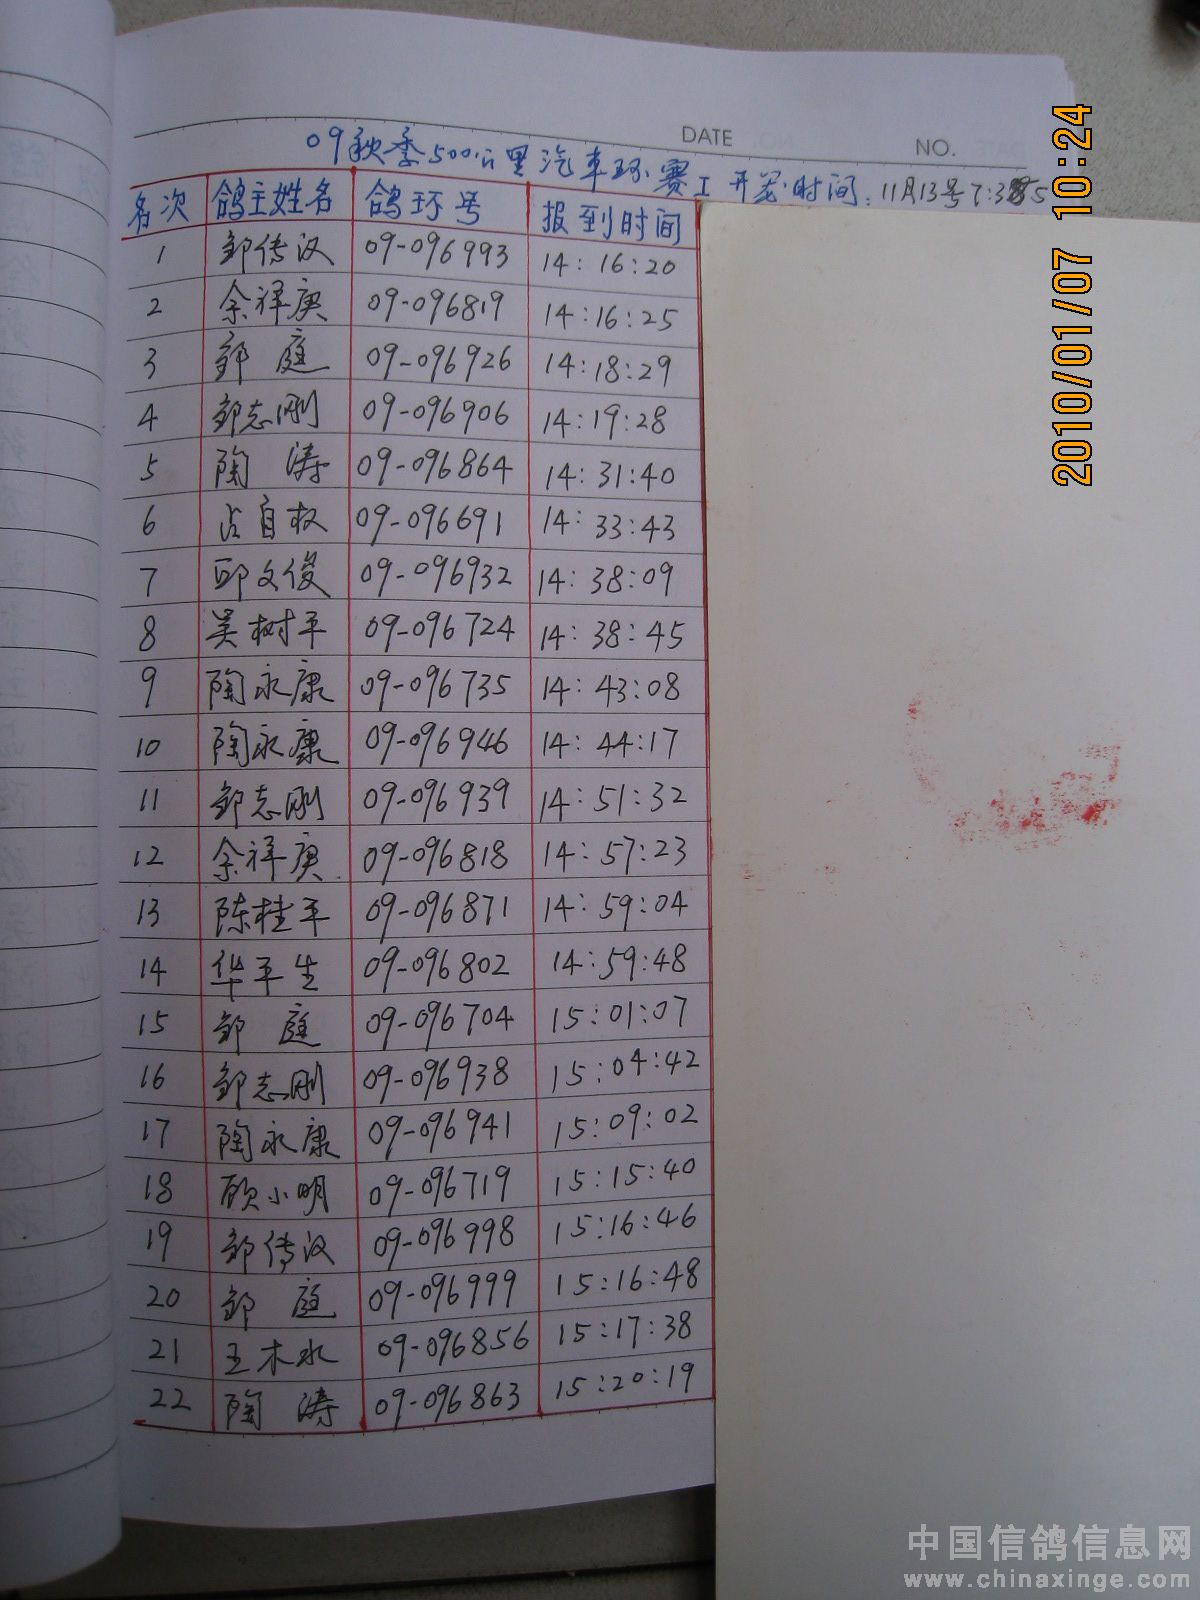 DATE
NO.
09秋季500公里汽车环赛 开笼时间:11月13号7:35
名次 鸽主姓名 鸽环号 报到时间
1 邹传汉 09-096993 14:16:20
2 余祥庚 09-096819 14:16:25
3 邹庭 09-096926 14:18:29
4 邹志刚 09-096906 14:19:28
5 陶涛 09-096864 14:31:40
6 占自权 09-096691 14:33:43
7 邱文俊 09-096932 14:38:09
8 吴树平 09-096724 14:38:45
9 陶永康 09-096735 14:43:08
10 陶永康 09-096946 14:44:17
11 邹志刚 09-096939 14:51:32
12 余祥庚 09-096818 14:57:23
13 陈桂平 09-096871 14:59:04
14 华平生 09-096802 14:59:48
15 邹庭 09-096704 15:01:07
16 邹志刚 09-096938 15:04:42
17 陶永康 09-096941 15:09:02
18 顾小明 09-096719 15:15:40
19 邹传汉 09-096998 15:16:46
20 邹庭 09-096999 15:16:48
21 王木水 09-096856 15:17:38
22 陶涛 09-096863 15:20:19
2010/01/07 10:24
中国信鸽信息网
www.chinaxinge.com